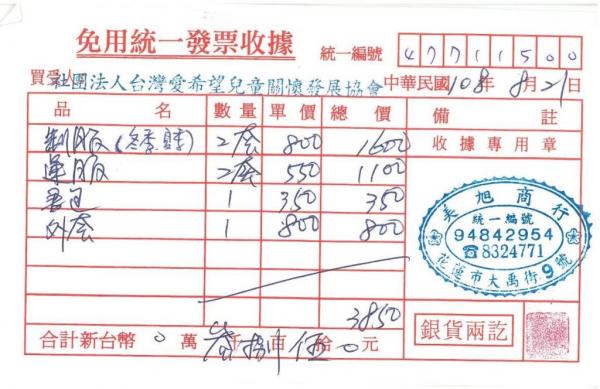 免用統一發票收據
統一編號 47711500
買受人 社團法人台灣愛希望兒童關懷發展協會 中華民國108年8月21日
品名 數量 單價 總價 備註
收據專用章
制服(冬季 2套 800 1600
運服 2套 550 1100
書包 1 350 350
外套 1 800 800
美旭商行
統一編號
94842954
☎8324771
花蓮市大禹街9號
3850
合計新台幣 0萬叁仟捌百伍拾0元
銀貨兩訖